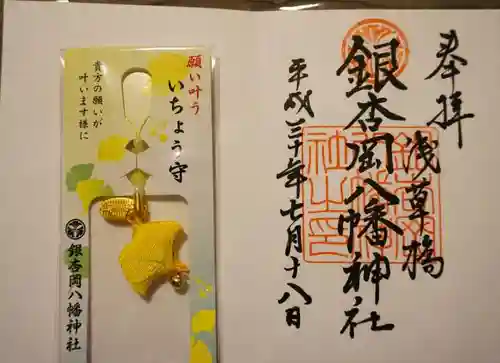 奉拝
浅草橋
銀杏岡八幡神社
平成三十年七月十八日
願い叶う
いちょう守
貴方の願いが
叶います様に
銀杏岡八幡神社